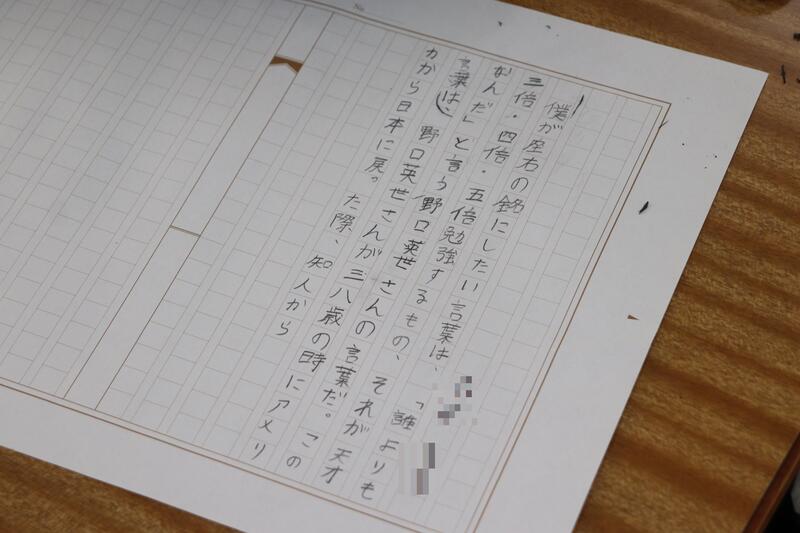 No.
僕が座右の銘にしたい言葉は、「誰よりも
三倍・四倍・五倍勉強するもの、それが天才
なんだ」と言う野口英世さんの言葉だ。この
言葉は、野口英世さんが三八歳の時にアメリ
カから日本に戻った際、知人から